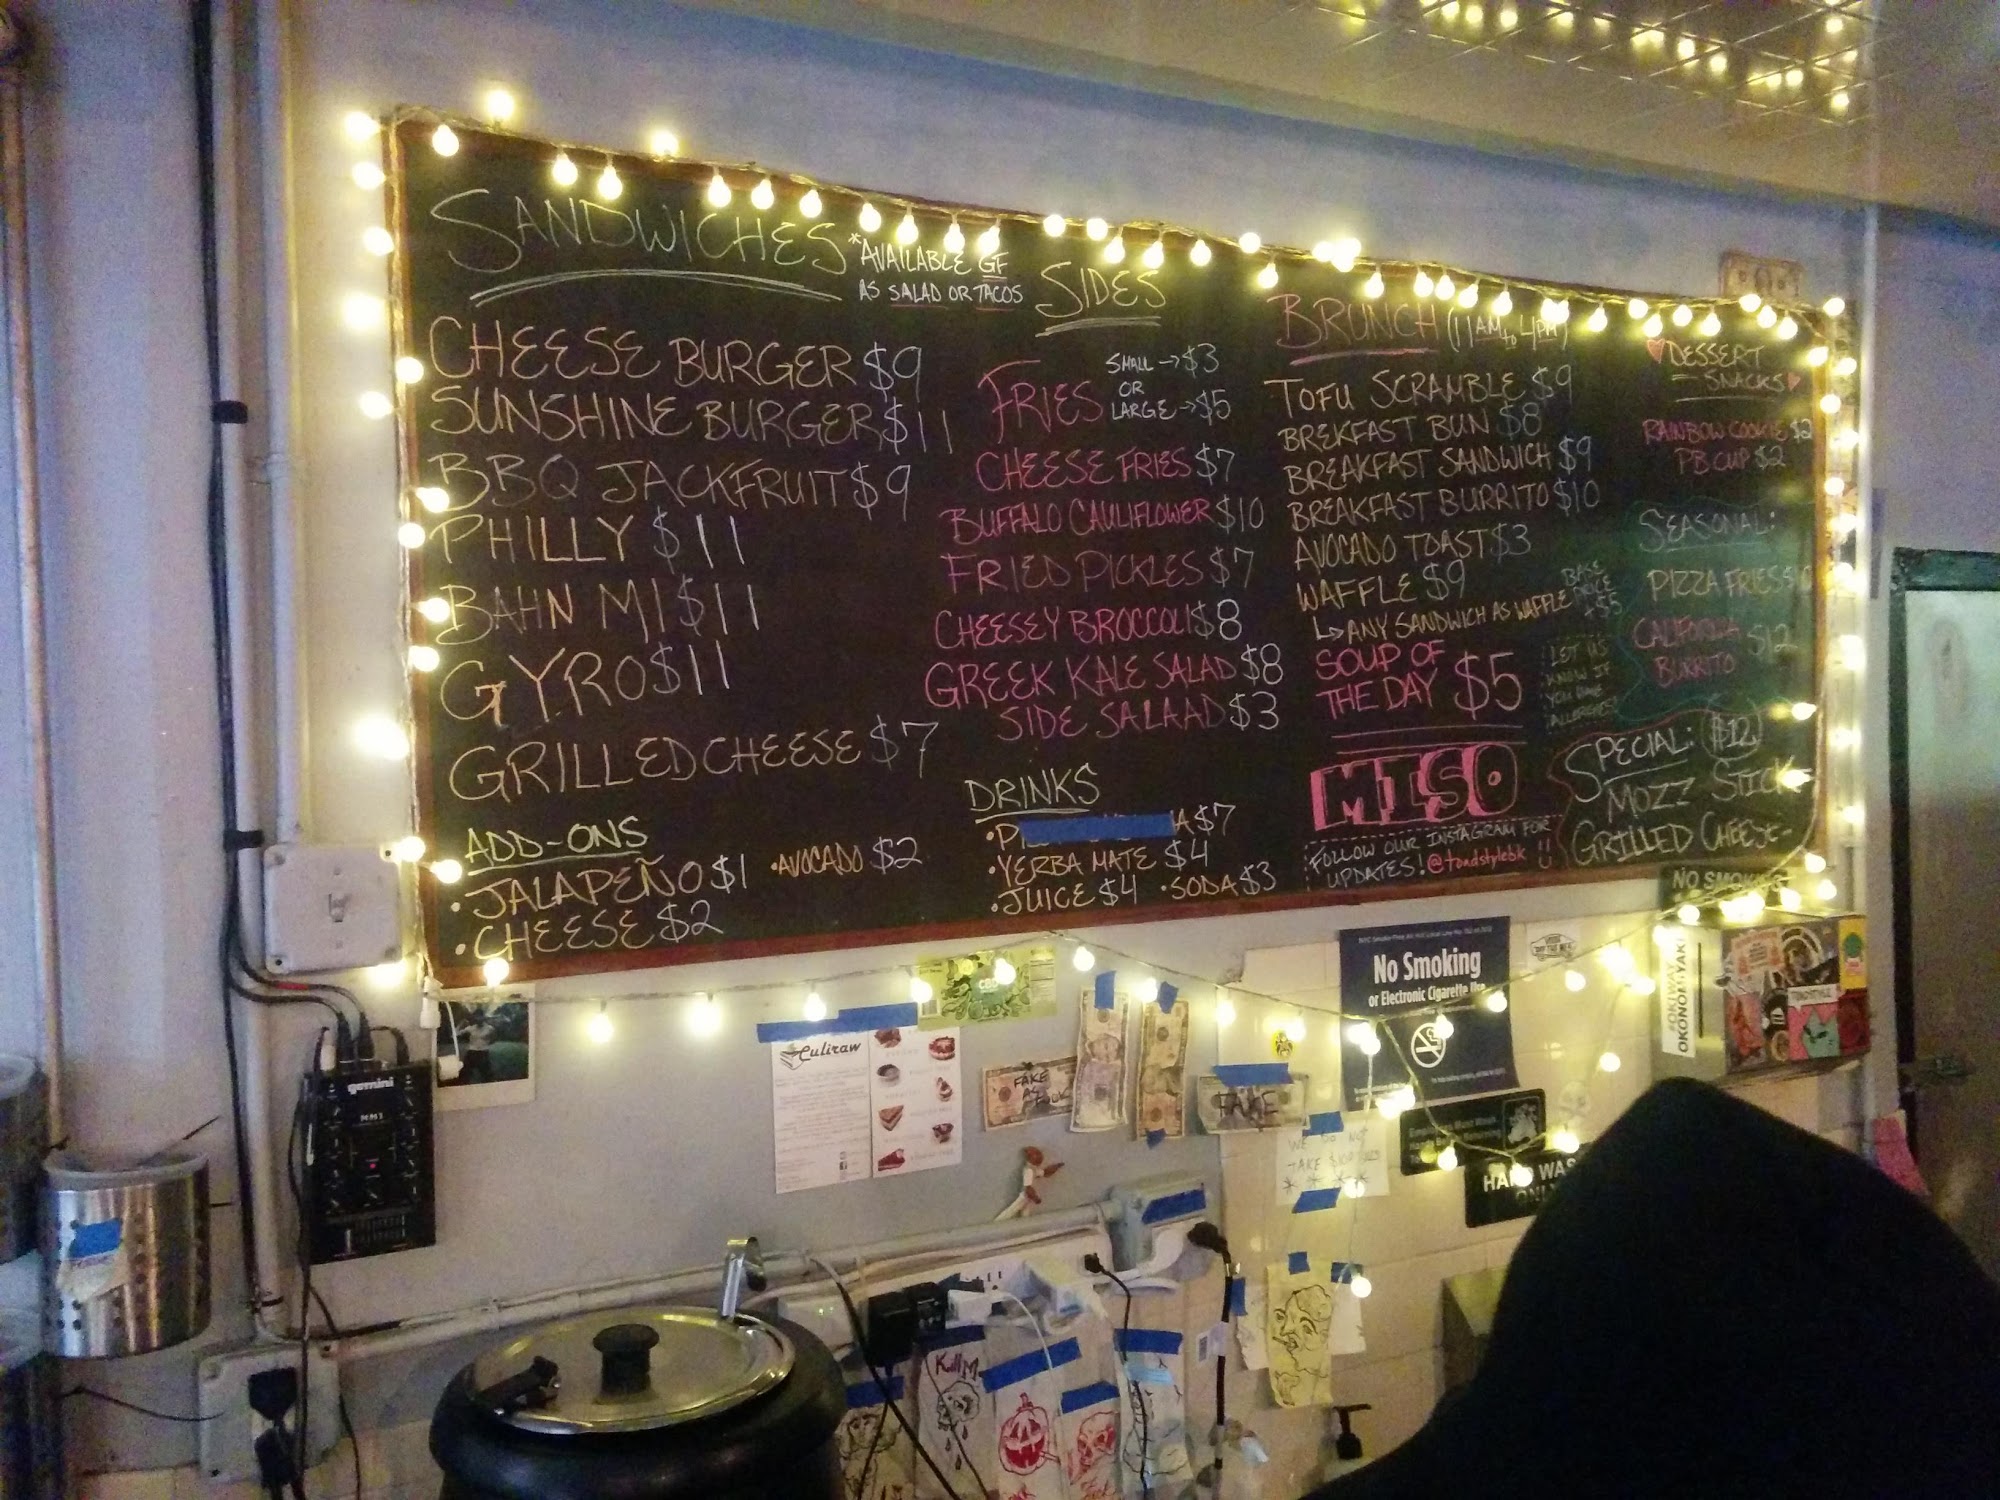 SANDWICHES
*AVAILABLE GF
AS SALAD OR TACOS
CHEESE BURGER $9
SUNSHINE BURGER $11
BBQ JACKFRUIT $9
PHILLY $11
BAHN MI $11
GYRO $11
GRILLED CHEESE $7
ADD-ONS
•JALAPEÑO $1 •AVOCADO $2
•CHEESE $2
SIDES
FRIES SMALL → $3
OR
LARGE → $5
CHEESE FRIES $7
BUFFALO CAULIFLOWER $10
FRIED PICKLES $7
CHEESEY BROCCOLI $8
GREEK KALE SALAD $8
SIDE SALAAD $3
DRINKS
•P A $7
•YERBA MATE $4
•JUICE $4 •SODA $3
BRUNCH (11AM to 4PM)
TOFU SCRAMBLE $9
BREKFAST BUN $8
BREAKFAST SANDWICH $9
BREAKFAST BURRITO $10
AVOCADO TOAST $3
WAFFLE $9
↳ ANY SANDWICH AS WAFFLE BASE PRICE +$5
SOUP OF
THE DAY $5
MISO
FOLLOW OUR INSTAGRAM FOR
UPDATES! @toadstylebk
LET US
KNOW IF
YOU HAVE
ALLERGIES!
♥DESSERT
SNACKS♥
RAINBOW COOKIE $2
PB CUP $2
SEASONAL:
PIZZA FRIES
CALIFORNIA
BURRITO $12
SPECIAL: $12
MOZZ STICK
GRILLED CHEESE
NO SMOKING
No Smoking
or Electronic Cigarette Use
#OKIWAY
OKONOMIYAKI
TOADSTYLE
VANS
"OFF THE WALL"
CBD
Culiraw
gemini
FAKE
AS FUCK
FAKE
WE DO NOT
TAKE $100 BILLS
HAND WASH
ONLY
Kill M